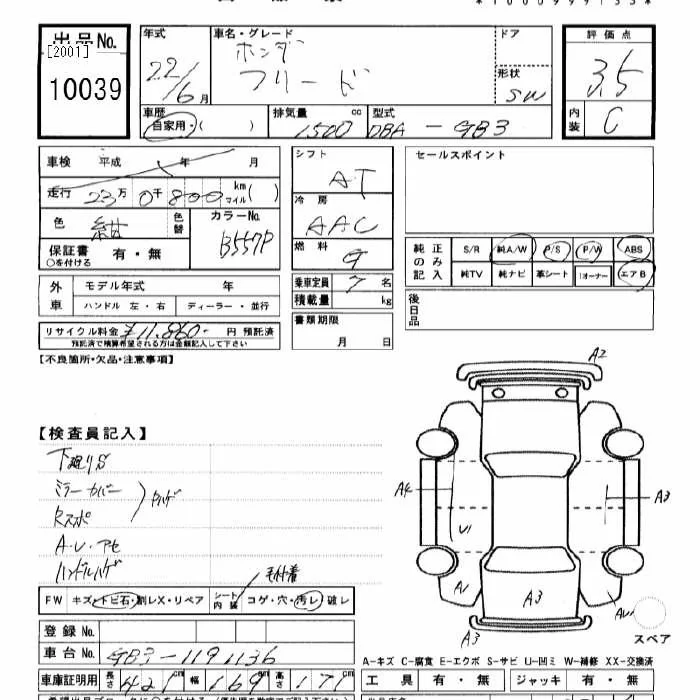 出品No.
[2001]
10039
年式
22/6月
車名・グレード
ホンダ
フリード
ドア
形状
SW
評価点
3.5
内装
C
車歴
自家用・( )
排気量
1500 cc
型式
DBA - GB3
車検 平成 年 月
走行 23万 0千 800 km マイル( )
色
紺
色替
カラーNo.
B557P
保証書 有・無
○を付ける
シフト
AT
冷房
AAC
燃料
G
乗車定員 7 名
積載量 kg
書類期限
月 日
セールスポイント
純正のみ記入
S/R 純A/W P/S P/W ABS
純TV 純ナビ 革シート 1オーナー エアB
後日品
外車
モデル年式 年
ハンドル 左・右 ディーラー・並行
リサイクル料金 ¥11,860- 円 預託済
預託済で精算希望される方は金額記入して下さい
【不良箇所・欠品・注意事項】
【検査員記入】
下廻りS
ミラーカバー
Rスポ
ヤケハゲ
A・U・アセ
ハンドルハゲ
毛付着
FW キズ・トビ石・割レX・リペア シート内装 コゲ・穴・汚レ・破レ
登録No.
車台No. GB3-1191136
車庫証明用 長さ 421 cm 幅 169 cm 高さ 171 cm
A2
A4
U1
A3
A1
A3
A3
AU
スペア
A-キズ C-腐食 E-エクボ S-サビ U-凹ミ W-補修 XX-交換済
工具 有・無 ジャッキ 有・無